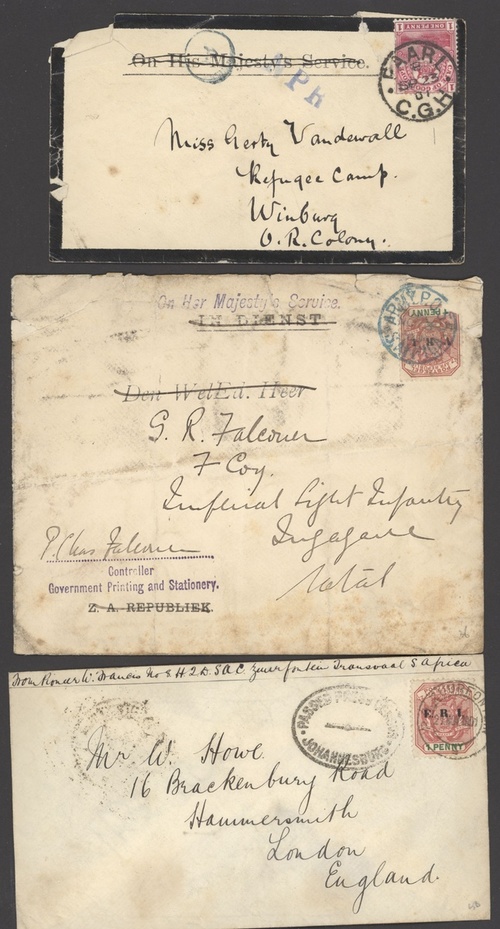 On His Majesty's Service.
ONE PENNY
PAARL
C.G.H
Miss Gerty Vandewall
Refugee Camp.
Winburg
O.R. Colony.
On Her Majesty's Service.
IN DIENST
ARMY P.O.
PENNY
Den WelEd. Heer
G. R. Falconer
F Coy.
Imperial Light Infantry
Ingagane
Natal
P. Chas Falconer
Controller
Government Printing and Stationery.
Z. A. REPUBLIEK.
From W. Francis No 5 H 2 D. S A C. Zuurfontein Transvaal S Africa
PASSED PRESS CENSOR
JOHANNESBURG
E. R. I.
1 PENNY
Mr W. Howe.
16 Brackenbury Road
Hammersmith
London
England.